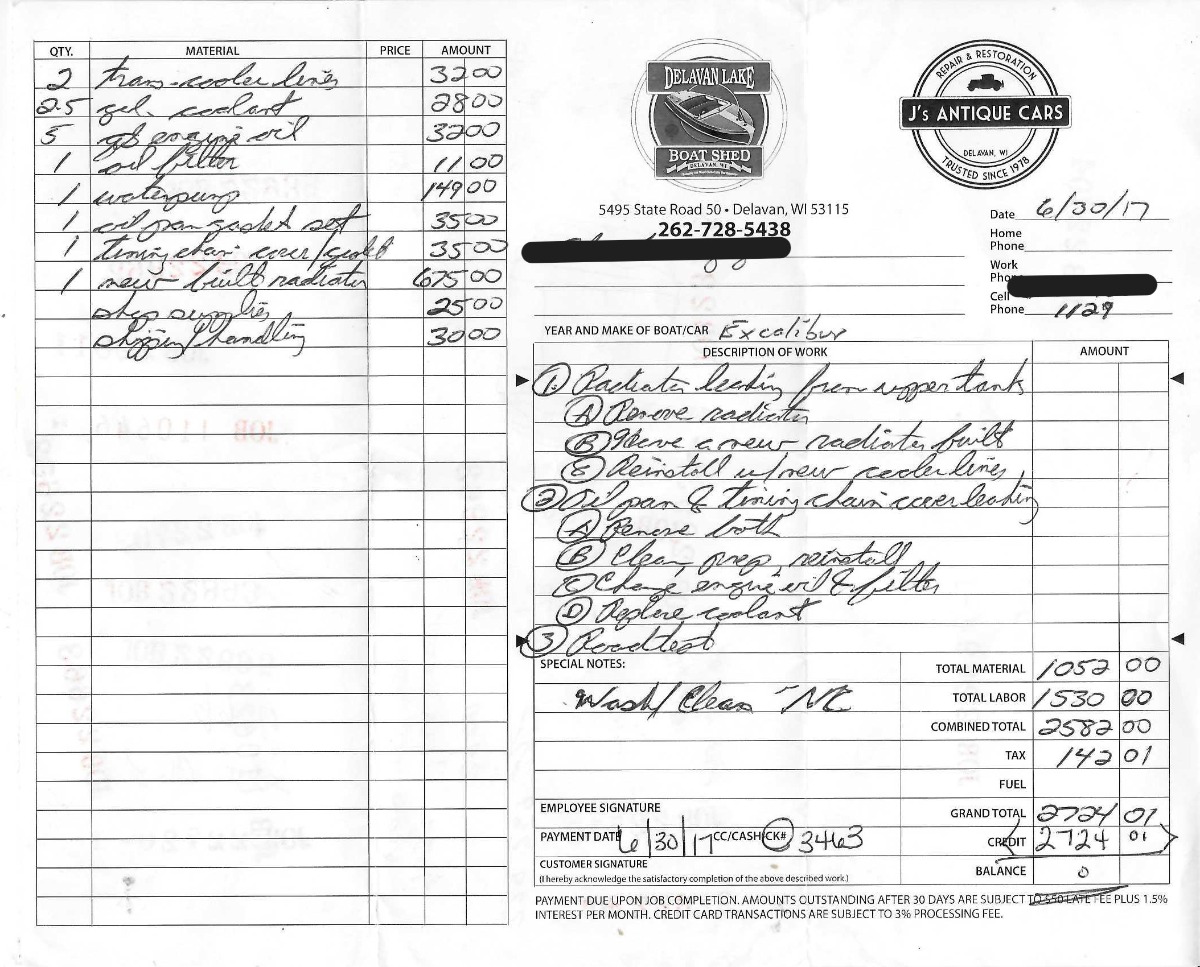 QTY. MATERIAL PRICE AMOUNT
2 trans-cooler lines 32 00
2.5 gal. coolant 28 00
5 qts engine oil 32 00
1 oil filter 11 00
1 waterpump 149 00
1 oil pan gasket set 35 00
1 timing chain cover/gasket 35 00
1 new built radiator 675 00
shop supplies 25 00
shipping/handling 30 00
DELAVAN LAKE
BOAT SHED
DELAVAN, WI
REPAIR & RESTORATION
J's ANTIQUE CARS
DELAVAN, WI
TRUSTED SINCE 1978
5495 State Road 50 • Delavan, WI 53115
262-728-5438
Date 6/30/17
Home Phone
Work
Cell Phone 1129
YEAR AND MAKE OF BOAT/CAR Excalibur
DESCRIPTION OF WORK AMOUNT
1. Radiator leaking from upper tank
A Remove radiator
B Have a new radiator built
C Reinstall w/new cooler lines
2 Oil pan & timing chain cover leaking
A Remove both
B Clean, prep, reinstall
C Change engine oil & filter
D Replace coolant
3 Roadtest
SPECIAL NOTES:
Wash/Clean - NC
TOTAL MATERIAL 1052 00
TOTAL LABOR 1530 00
COMBINED TOTAL 2582 00
TAX 142 01
FUEL
EMPLOYEE SIGNATURE
GRAND TOTAL 2724 01
PAYMENT DATE 6/30/17 CC/CASH/CK# 3463
CREDIT 2724 01
CUSTOMER SIGNATURE
(I hereby acknowledge the satisfactory completion of the above described work.)
BALANCE 0
PAYMENT DUE UPON JOB COMPLETION. AMOUNTS OUTSTANDING AFTER 30 DAYS ARE SUBJECT TO $50 LATE FEE PLUS 1.5%
INTEREST PER MONTH. CREDIT CARD TRANSACTIONS ARE SUBJECT TO 3% PROCESSING FEE.